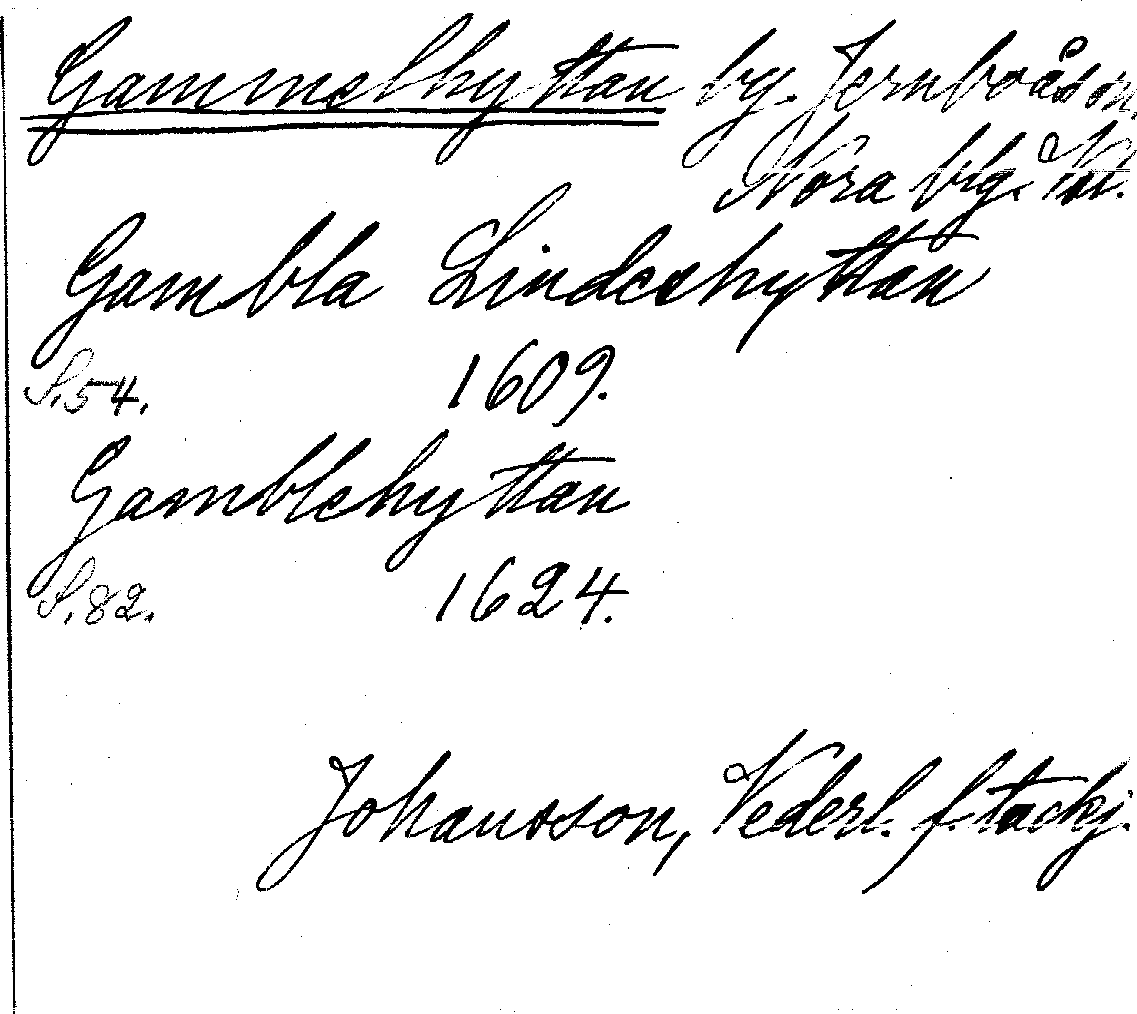 Gammelhyttan by. Jernboåson,
Nora blg. Vstm.
Gambla Lindeshyttan
S. 54. 1609.
Gamblehyttan
S. 82. 1624.
Johansson, Vederl. f. tackj.